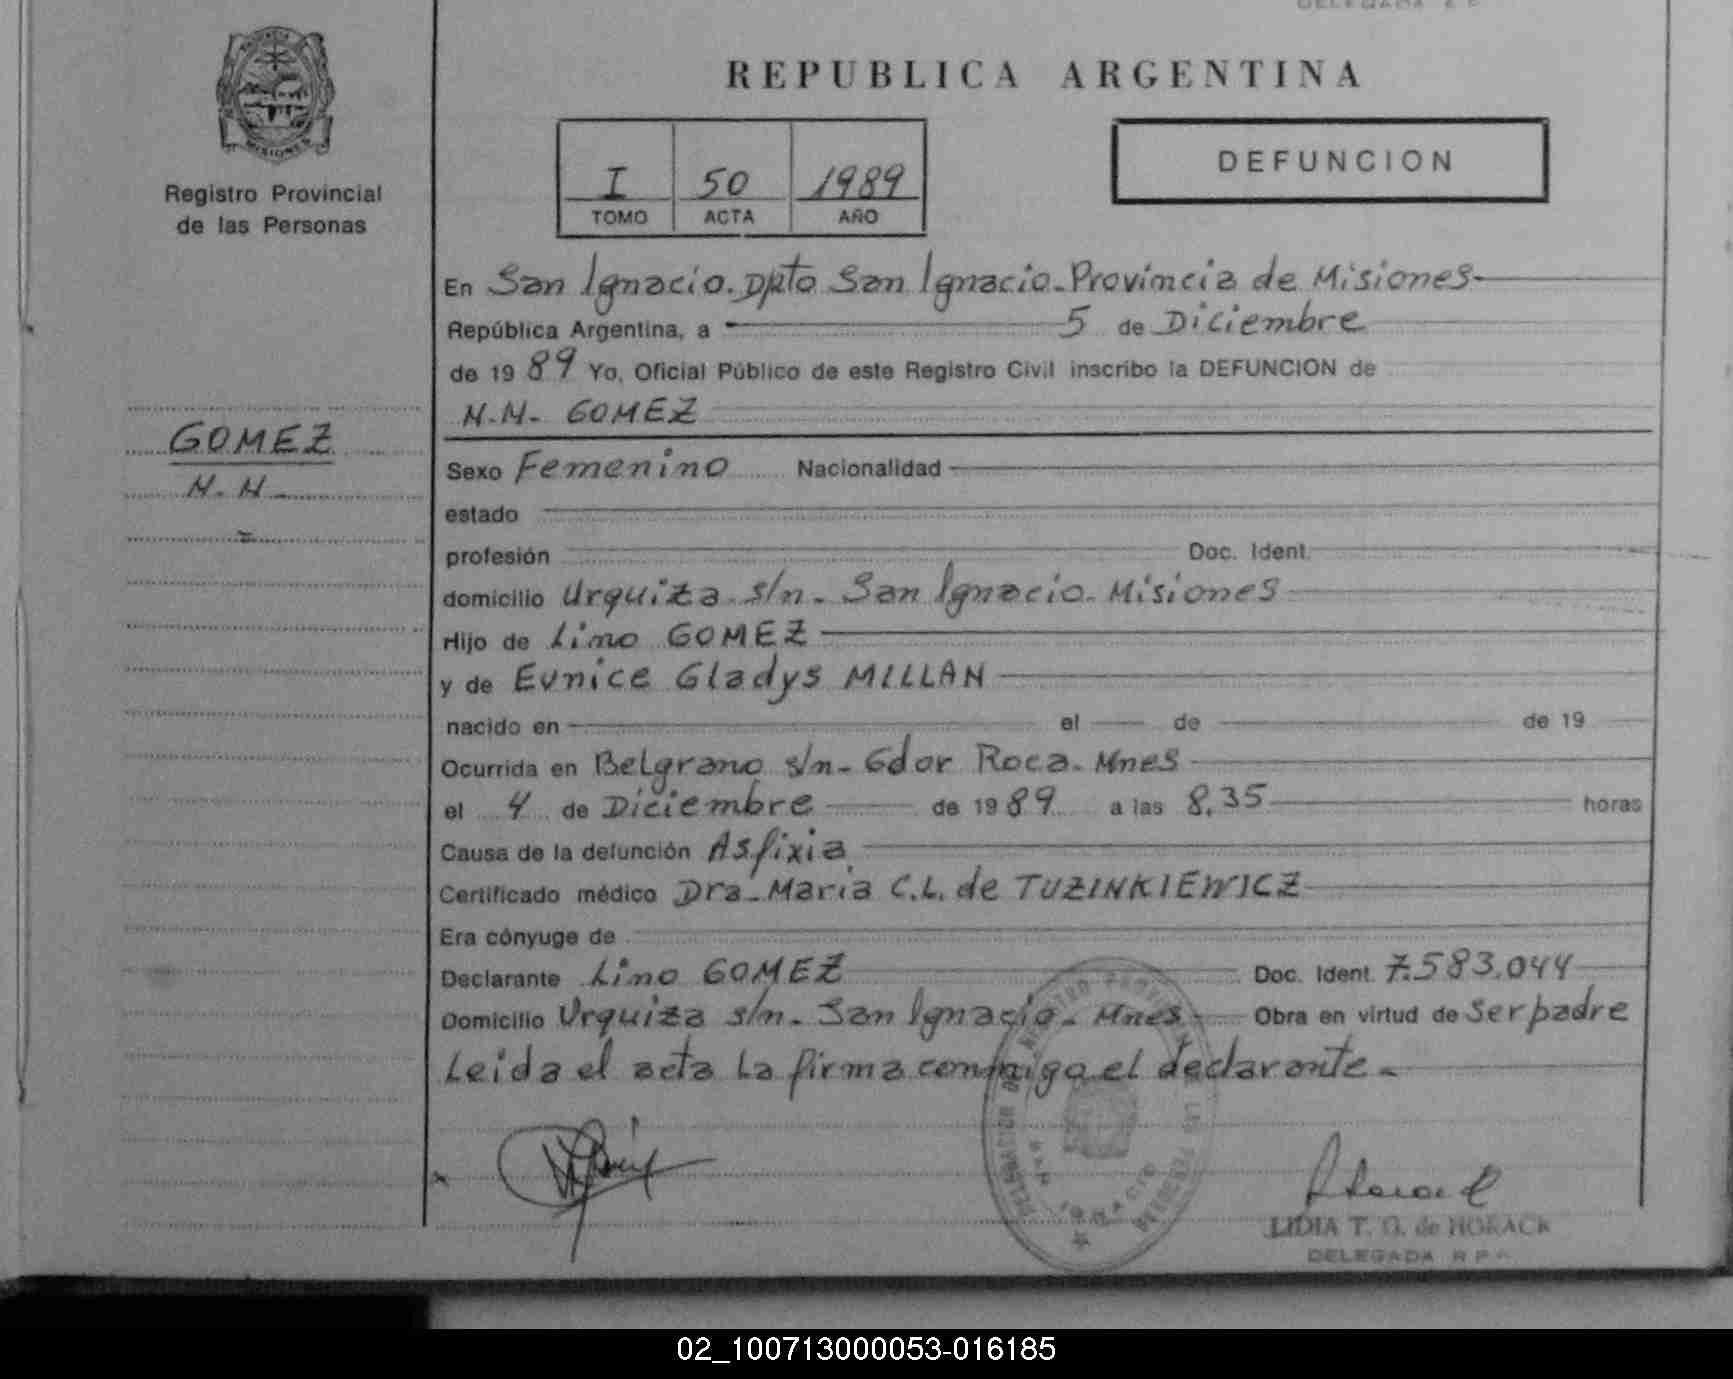 REPUBLICA ARGENTINA
MISIONES
Registro Provincial
de las Personas
I 50 1989
TOMO ACTA AÑO
DEFUNCION
En San Ignacio. Dpto San Ignacio. Provincia de Misiones
República Argentina, a 5 de Diciembre
de 1989 Yo, Oficial Público de este Registro Civil inscribo la DEFUNCION de
N.N. GOMEZ
GOMEZ
N.N.
Sexo Femenino Nacionalidad
estado
profesión Doc. Ident.
domicilio Urquiza s/n. San Ignacio. Misiones
Hijo de Lino GOMEZ
y de Eunice Gladys MILLAN
nacido en el de de 19
Ocurrida en Belgrano s/n- Gdor Roca. Mnes
el 4 de Diciembre de 1989 a las 8,35 horas
Causa de la defunción Asfixia
Certificado médico Dra. Maria C.L. de TUZINKIEWICZ
Era cónyuge de
Declarante Lino GOMEZ Doc. Ident. 7.583.044
Domicilio Urquiza s/n. San Ignacio. Mnes Obra en virtud de ser padre
Leida el acta la firma conmigo el declarante.
LIDIA T. G. de HORACK
DELEGADA R.P.
02_100713000053-016185